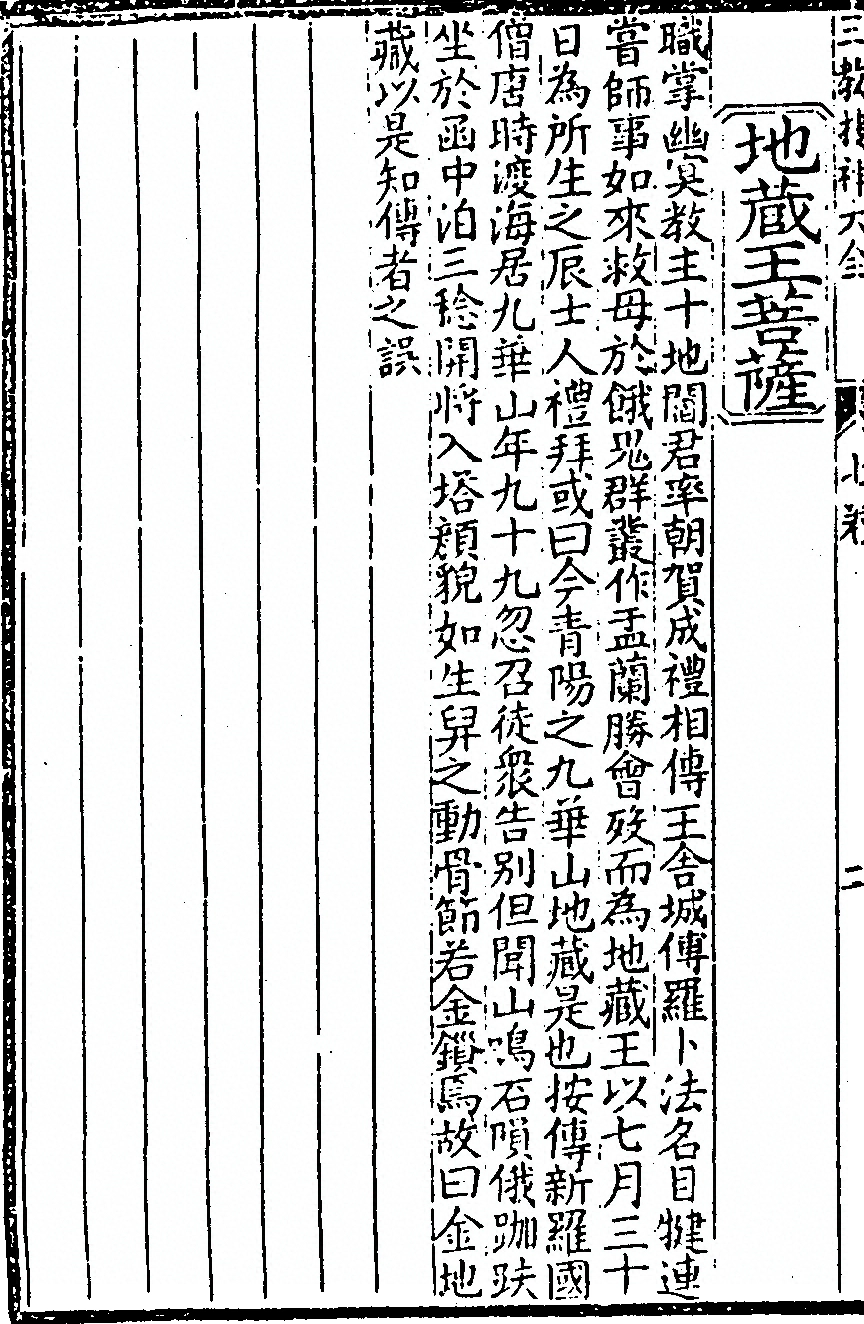 三教搜神大全 七卷 二
地藏王菩薩
職掌幽冥教主十地閻君率朝賀成禮相傳王舍城傅羅卜法名目犍連
嘗師事如來救母於餓鬼群叢作盂蘭勝會歿而為地藏王以七月三十
日為所生之辰士人禮拜或曰今青陽之九華山地藏是也按傳新羅國
僧唐時渡海居九華山年九十九忽召徒衆告別但聞山鳴石隕俄跏趺
坐於函中泊三稔開將入塔顔貌如生舁之動骨節若金鎖焉故曰金地
藏以是知傳者之誤